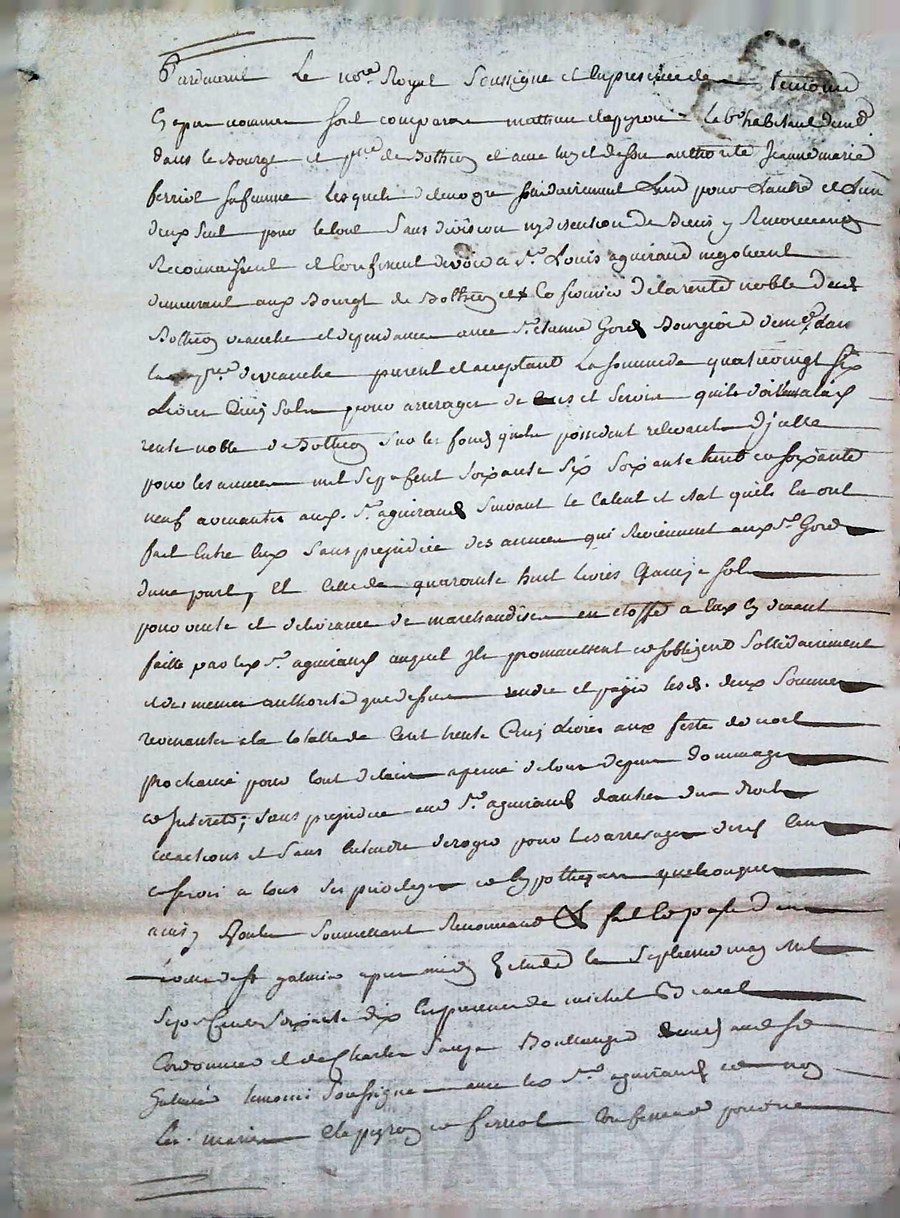 Pardevant Le no.re Royal Soussigne et En presence de temoins
Cy apres nommes sont comparu mathieu clapeyron habitant
dans le Bourg et p.sse de Bothéon et avec luy et de son authorité Jeanne marie
ferriol sa femme Lesquels de leur gre solidairement L'un pour L'autre et L'un
d'eux seul pour le tout Sans division ny discution de Biens y Renonceant
Reconnaissent et Confessent devoir a S.r Louis aguiraud negotiant
demeurant aux Bourg de Bothéon et Co fermier de la rente noble dud.
Bothéon veauche et dependances avec S.r Gord Bourgeois dem.t dans
la p.sse de veauche present et acceptant La somme de quatrevingt six
Livres Cinq Sols pour arrerages de Cens et Servis quils doivent a la d.
rente noble de Bothéon Sur les fonds quils possedent relevants d'jcelle
pour les années mil Sept Cent Soixante Six Soixante huit et soixante
neuf avenantes aud. S.r aguiraud Suivant le Calcul et etat quils En ont
fait Entre Eux Sans prejudice des années qui Reviennent aud. S.r Gord
d'une part, Et Celle de quarante huit Livres Quinze Sols
pour vente et delivrance de marchandises en etoffes a Eux Cy devant
faitte par led. S.r aguiraud auquel Ils promettent et s'obligent Sollidairement
et des memes authorité que dessus rendre et payer lesd. deux Sommes
revenantes a la totalle de Cent trente Cinq Livres aux fetes de noel
prochaine pour tout delais a peine de tous depens dommages
et Interets; Sans prejudice aud. S.r aguiraud d'autres dus droits
et actions et Sans Entendre deroger pour les arrerages desd. Cens
et servis a tous ses privileges et hypotheques quelconques
ainsy voulu Soumettant Renonceant & fait Et passé
S.t galmier apres midy Etude le Septieme may Mil
Sept Cents Soixante dix En presence de michel
Cordonnier et de Charles Boullanger dud. S.t
Galmier temoins Soussignes avec led. S.r aguiraud et non
Les maries Clapeyron et ferriol